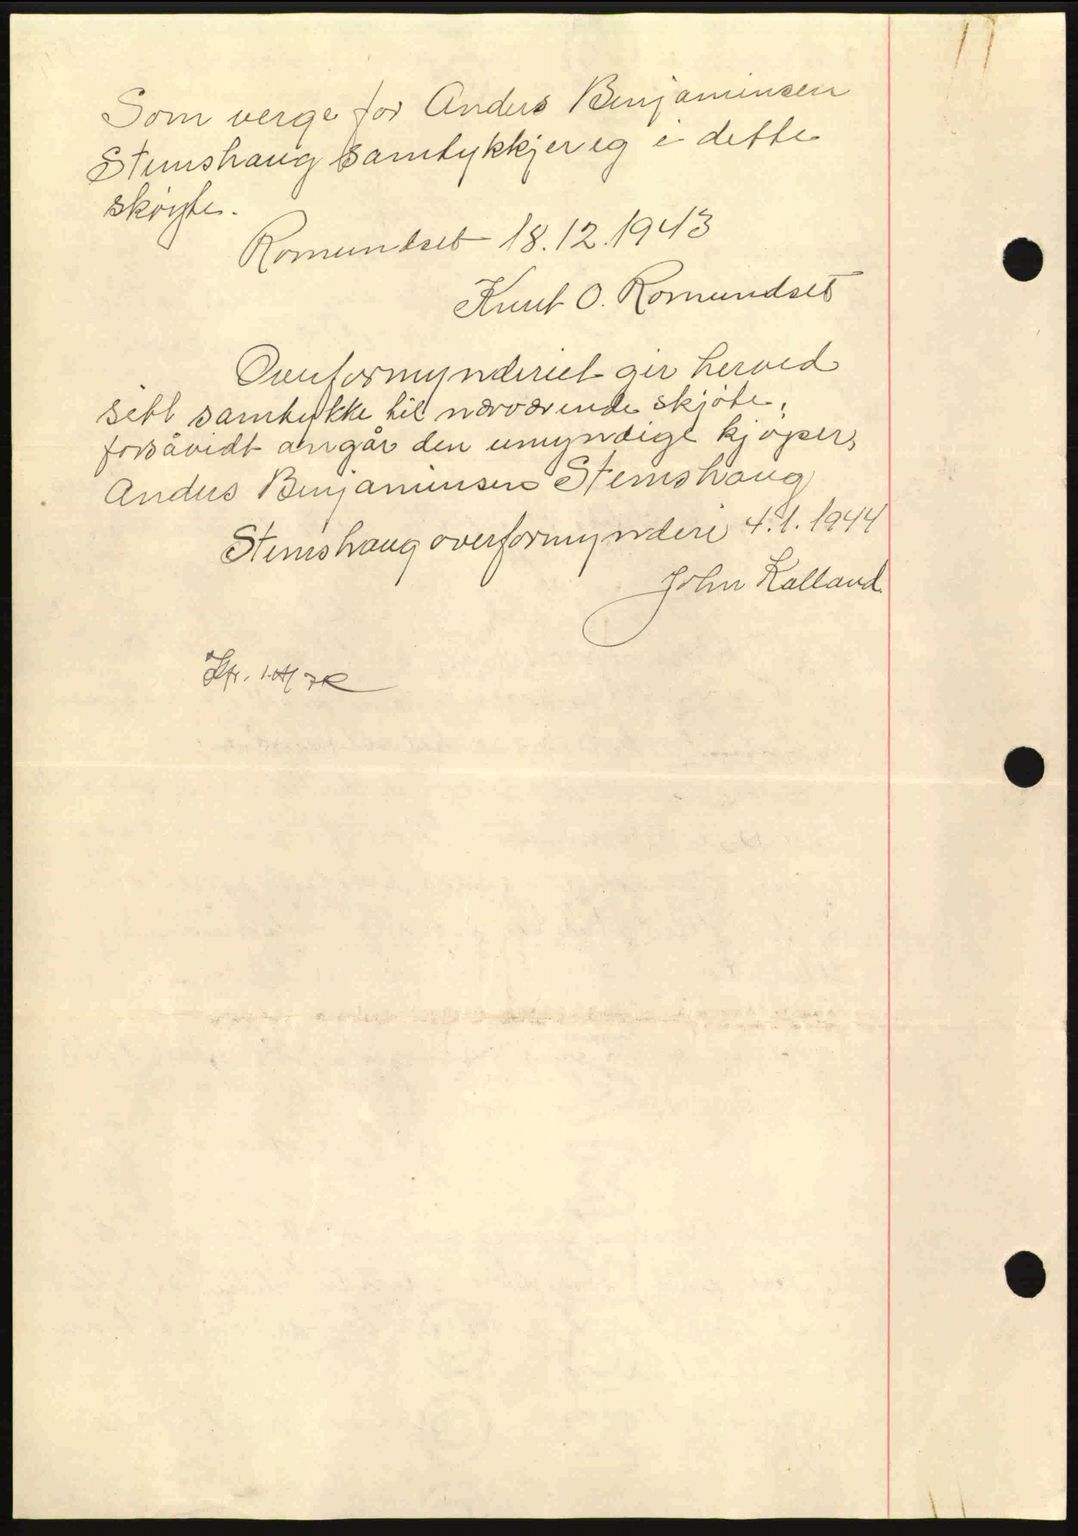 Som verge for Anders Benjaminsen
Stemshaug samtykkjer eg i dette
skøyte.
Romundset 18.12.1943
Knut O. Romundset
Overformynderiet gir herved
sitt samtykke til nærværende skjöte,
forsåvidt angår den umyndige kjöper,
Anders Benjaminsen Stemshaug
Stemshaug overformynderi 4.1.1944
John Kalland
Jfr.